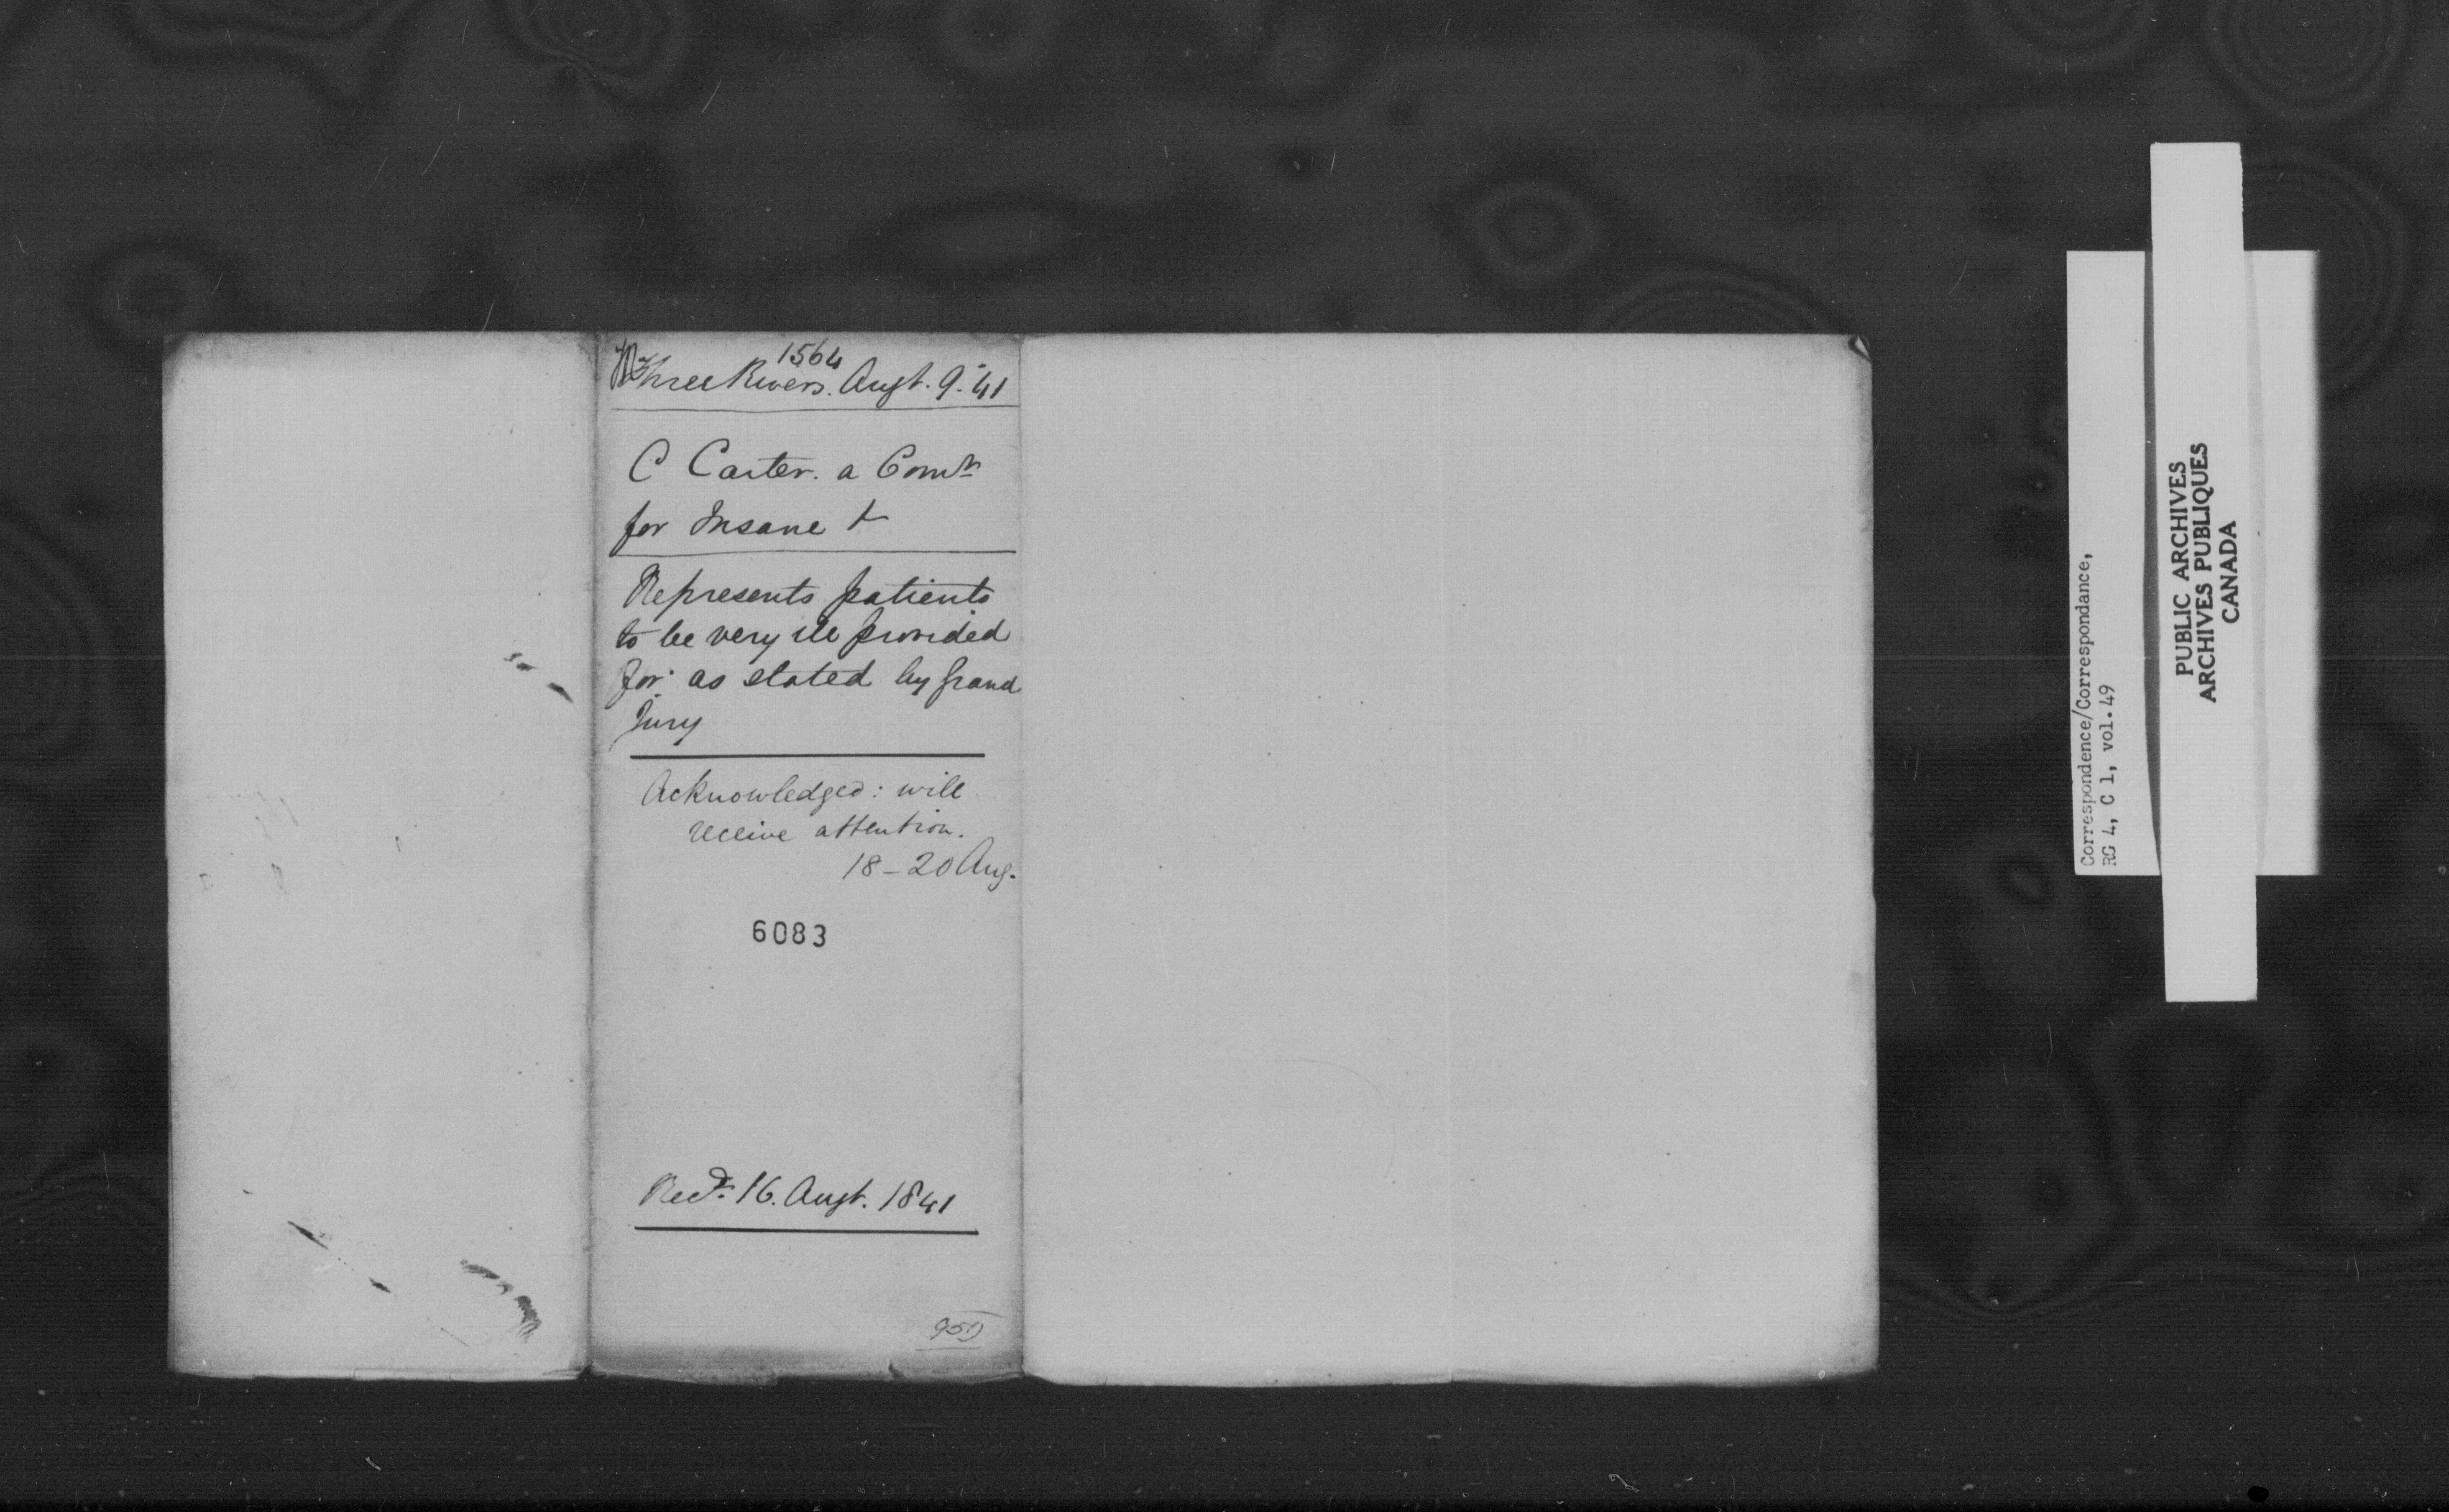 1564
Three Rivers. Augt. 9. 41
C Carter. a Comr
for Insane &
Represents patients
to be very ill provided
for. as stated by Grand
Jury
Acknowledged: will
receive attention.
18-20 Aug.
6083
Recd. 16. Augt. 1841
Correspondence/Correspondance,
RG 4, C 1, vol.49
PUBLIC ARCHIVES
ARCHIVES PUBLIQUES
CANADA